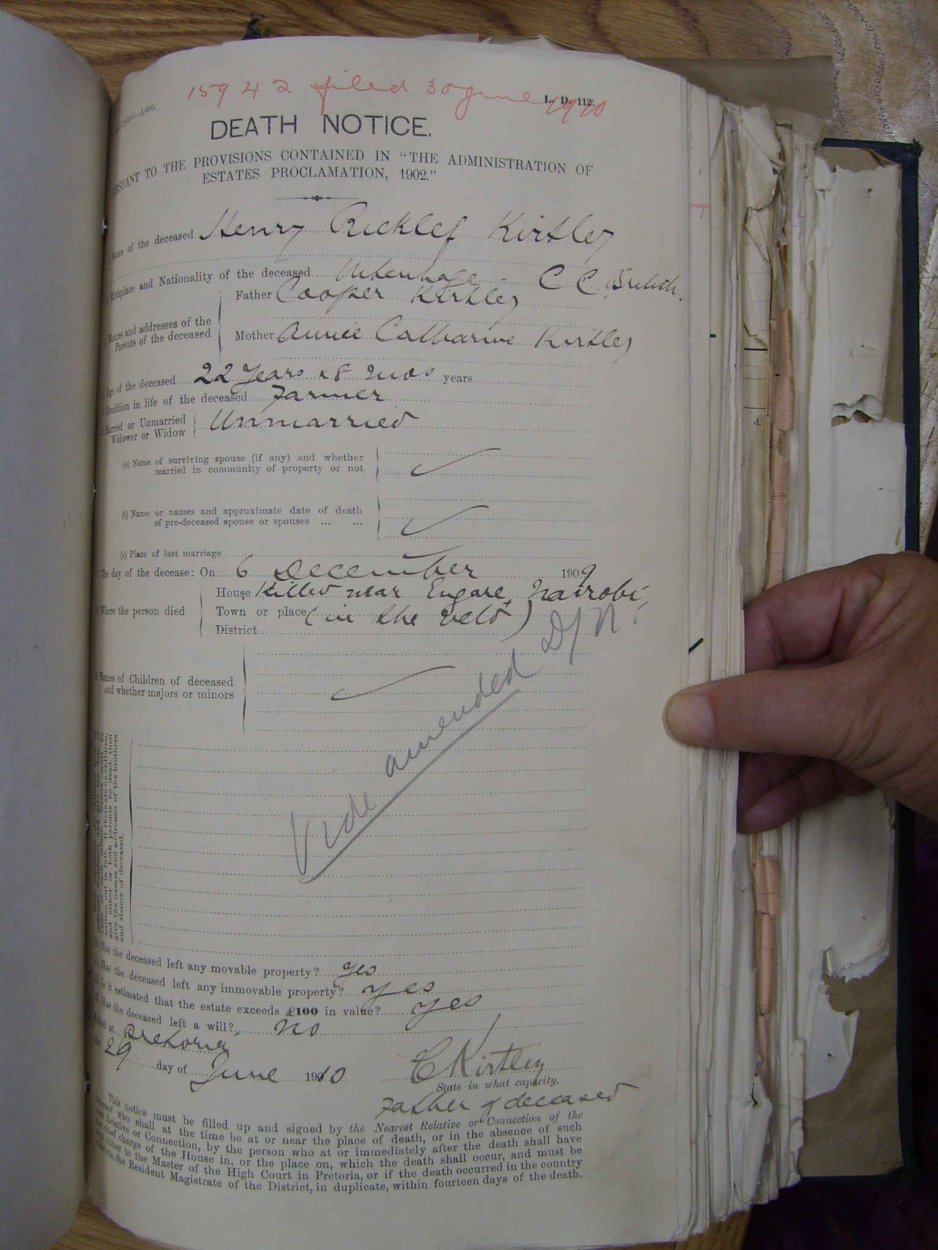 15942 filed 30 June 1910
L. D. 112.
DEATH NOTICE.
TO THE PROVISIONS CONTAINED IN "THE ADMINISTRATION OF
ESTATES PROCLAMATION, 1902."
Name of the deceased Henry Ricklef Kirtley
Birthplace and Nationality of the deceased Uitenhage C C British.
Names and addresses of the Parents of the deceased
Father Cooper Kirtley
Mother Annie Catharine Kirtley
Age of the deceased 22 years & 8 mos years
Condition in life of the deceased Farmer
Married or Unmarried Widower or Widow Unmarried
(a) Name of surviving spouse (if any) and whether
married in community of property or not
(b) Name or names and approximate date of death
of pre-deceased spouse or spouses ... ...
(c) Place of last marriage
The day of the decease: On 6 December 1909
Where the person died
House Killed near Engare Nairobi,
Town or place (in the veld)
District
Names of Children of deceased
and whether majors or minors
Vide amended D/N.
give the names and addresses of the brothers
and sisters of deceased.
Has the deceased left any movable property? yes
Has the deceased left any immovable property? yes
Is it estimated that the estate exceeds £100 in value? yes
Has the deceased left a will? no
at Pretoria
29 day of June 1910
C Kirtley
State in what capacity.
Father of deceased
This notice must be filled up and signed by the Nearest Relative or Connection of the
who shall at the time be at or near the place of death, or in the absence of such
Relative or Connection, by the person who at or immediately after the death shall have
charge of the House in, or the place on, which the death shall occur, and must be
to the Master of the High Court in Pretoria, or if the death occurred in the country
the Resident Magistrate of the District, in duplicate, within fourteen days of the death.